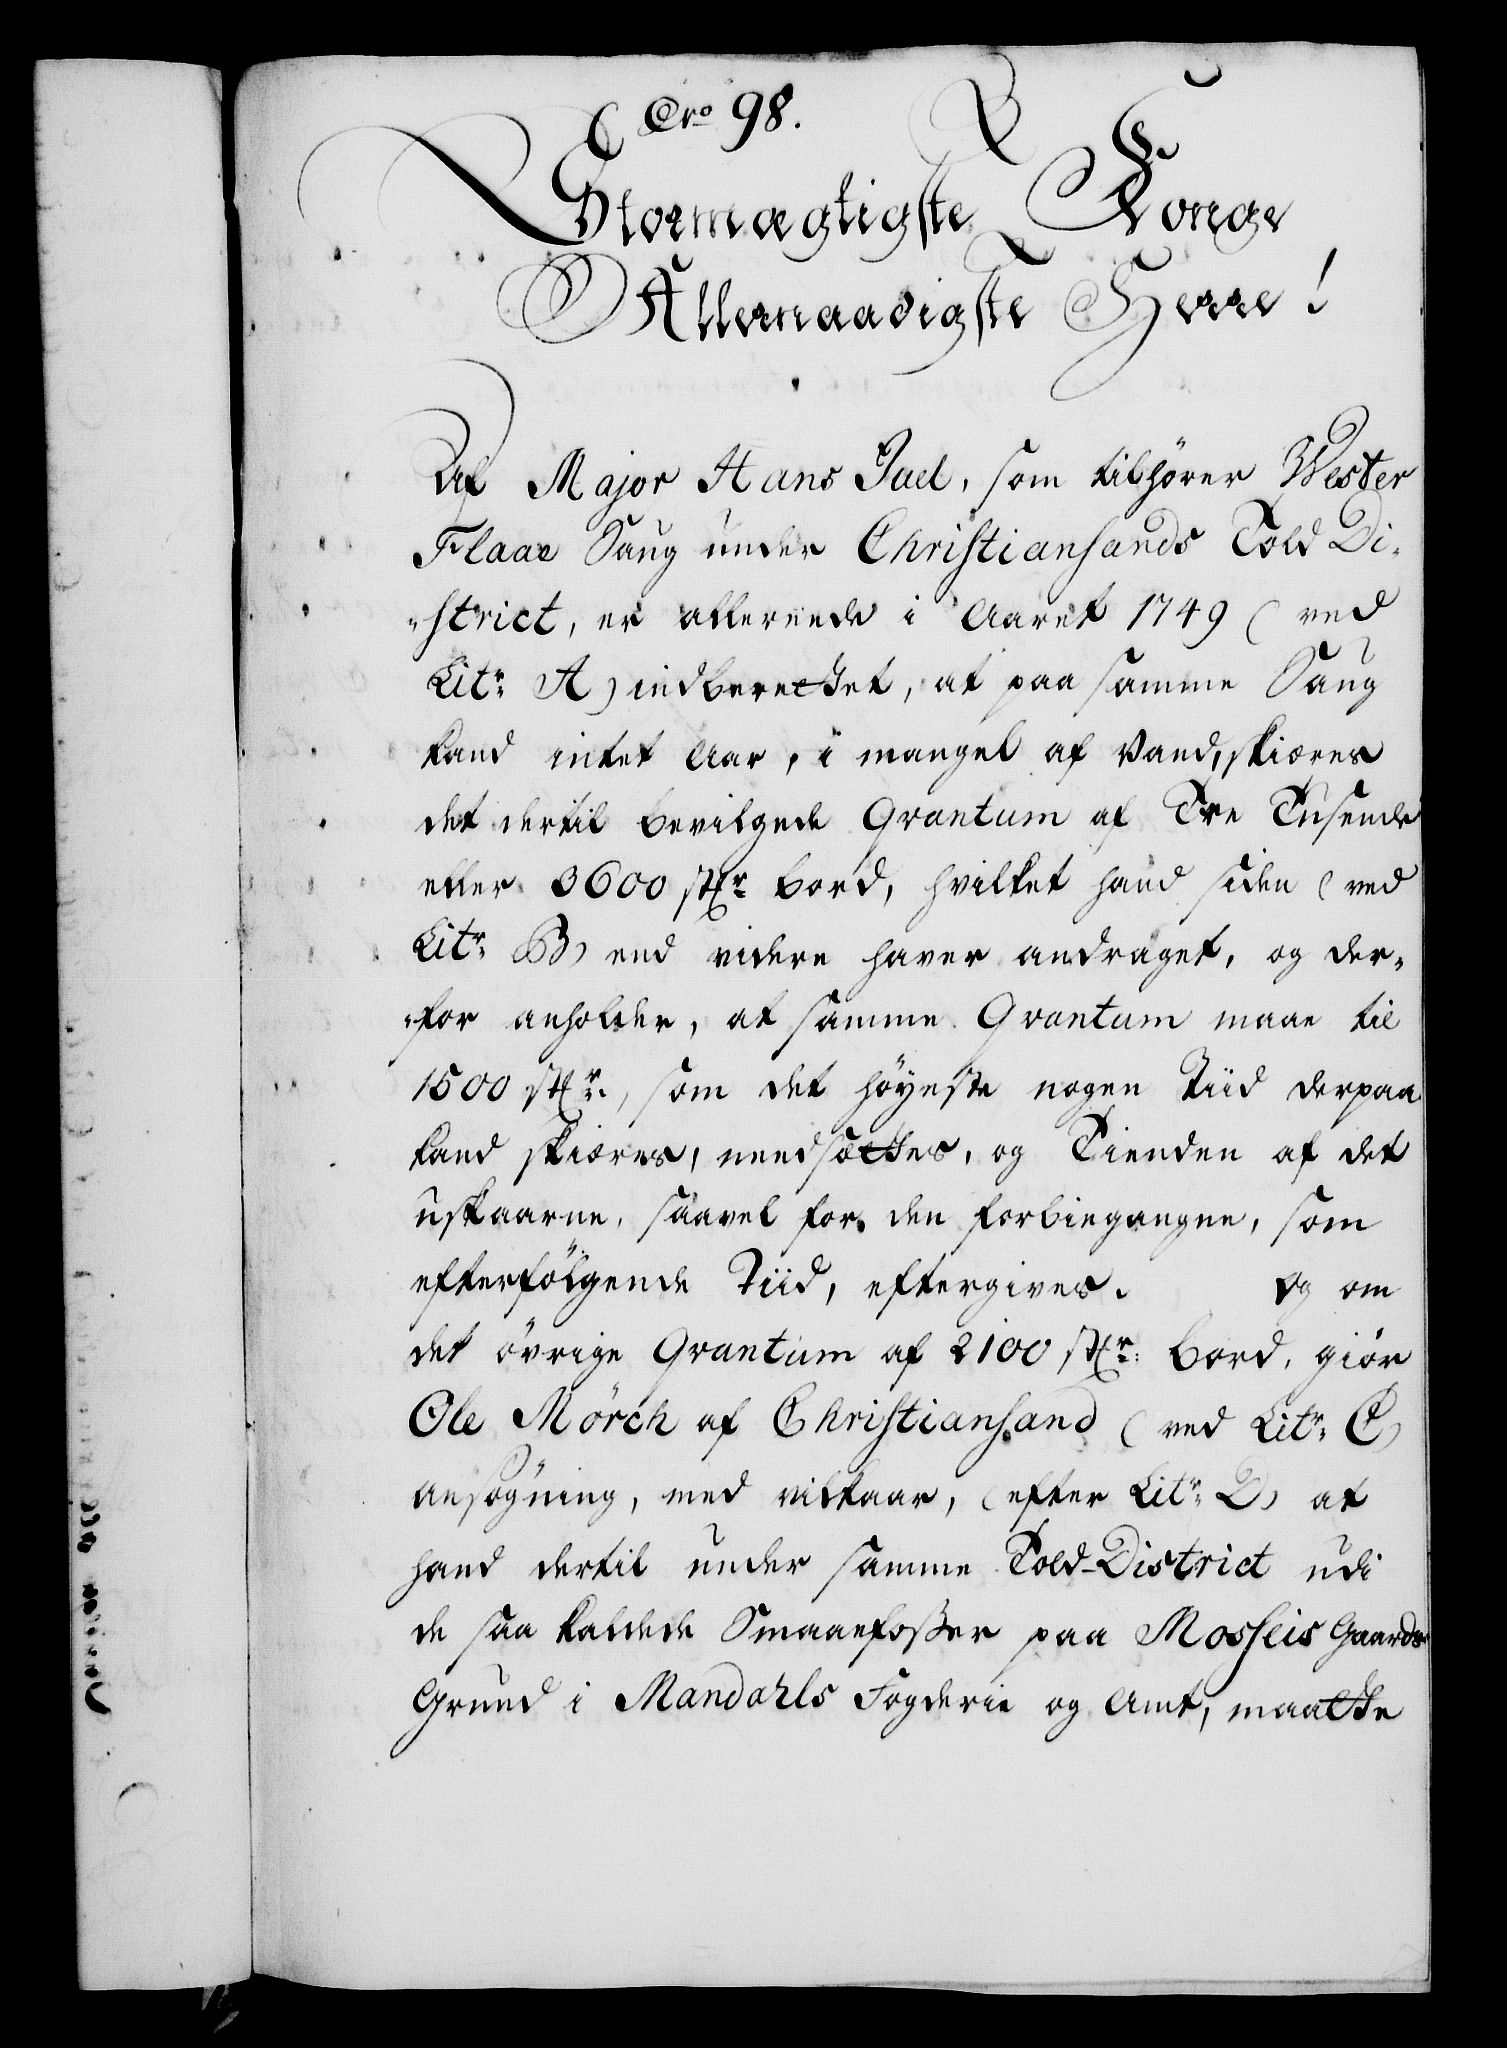 No 98.
Stormægtigste Konge
Allernaadigste Herre!
Af Major Hans Juel, som tilhører Wester
Flaae Saug under Christiansands Told Di-
-strict, er allereede i Aaret 1749 (ved
Litr: A) indberettet, at paa samme Saug
kand intet Aar, i mangel af Vand, skiæres
det dertil bevilgede Qvantum af Tre Tusende
eller 3600 stkr: bord, hvilket hand siden (ved
Litr: B) end videre haver andraget, og der-
-for anholder, at samme Qvantum maae til
1500 stkr:, som det høyeste nogen Tiid derpaa
kand skiæres, needsættes, og Tienden af det
uskaarne, saavel for den forbiegangne, som
efterfölgende Tiid, eftergives. Og om
det övrige Qvantum af 2100 stkr: bord, giör
Ole Mörch af Christiansand (ved Litr: C)
ansøgning, med vilkaar, (efter Litr: D) at
hand dertil under samme Told-District udi
de saa kaldede Smaaefosser paa Mosseis Gaards
Grund i Mandahls Fogderie og Amt, maatte